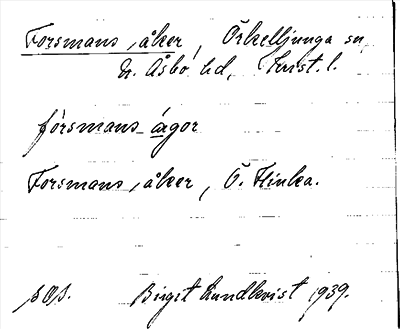 Forsmans åker, Örkelljunga sn,
N. Åsbo hd, Krist. l.
fórsmans ágor
Forsmans åker, Ö. Flinka.
sos. Birgit Lundkvist 1939.